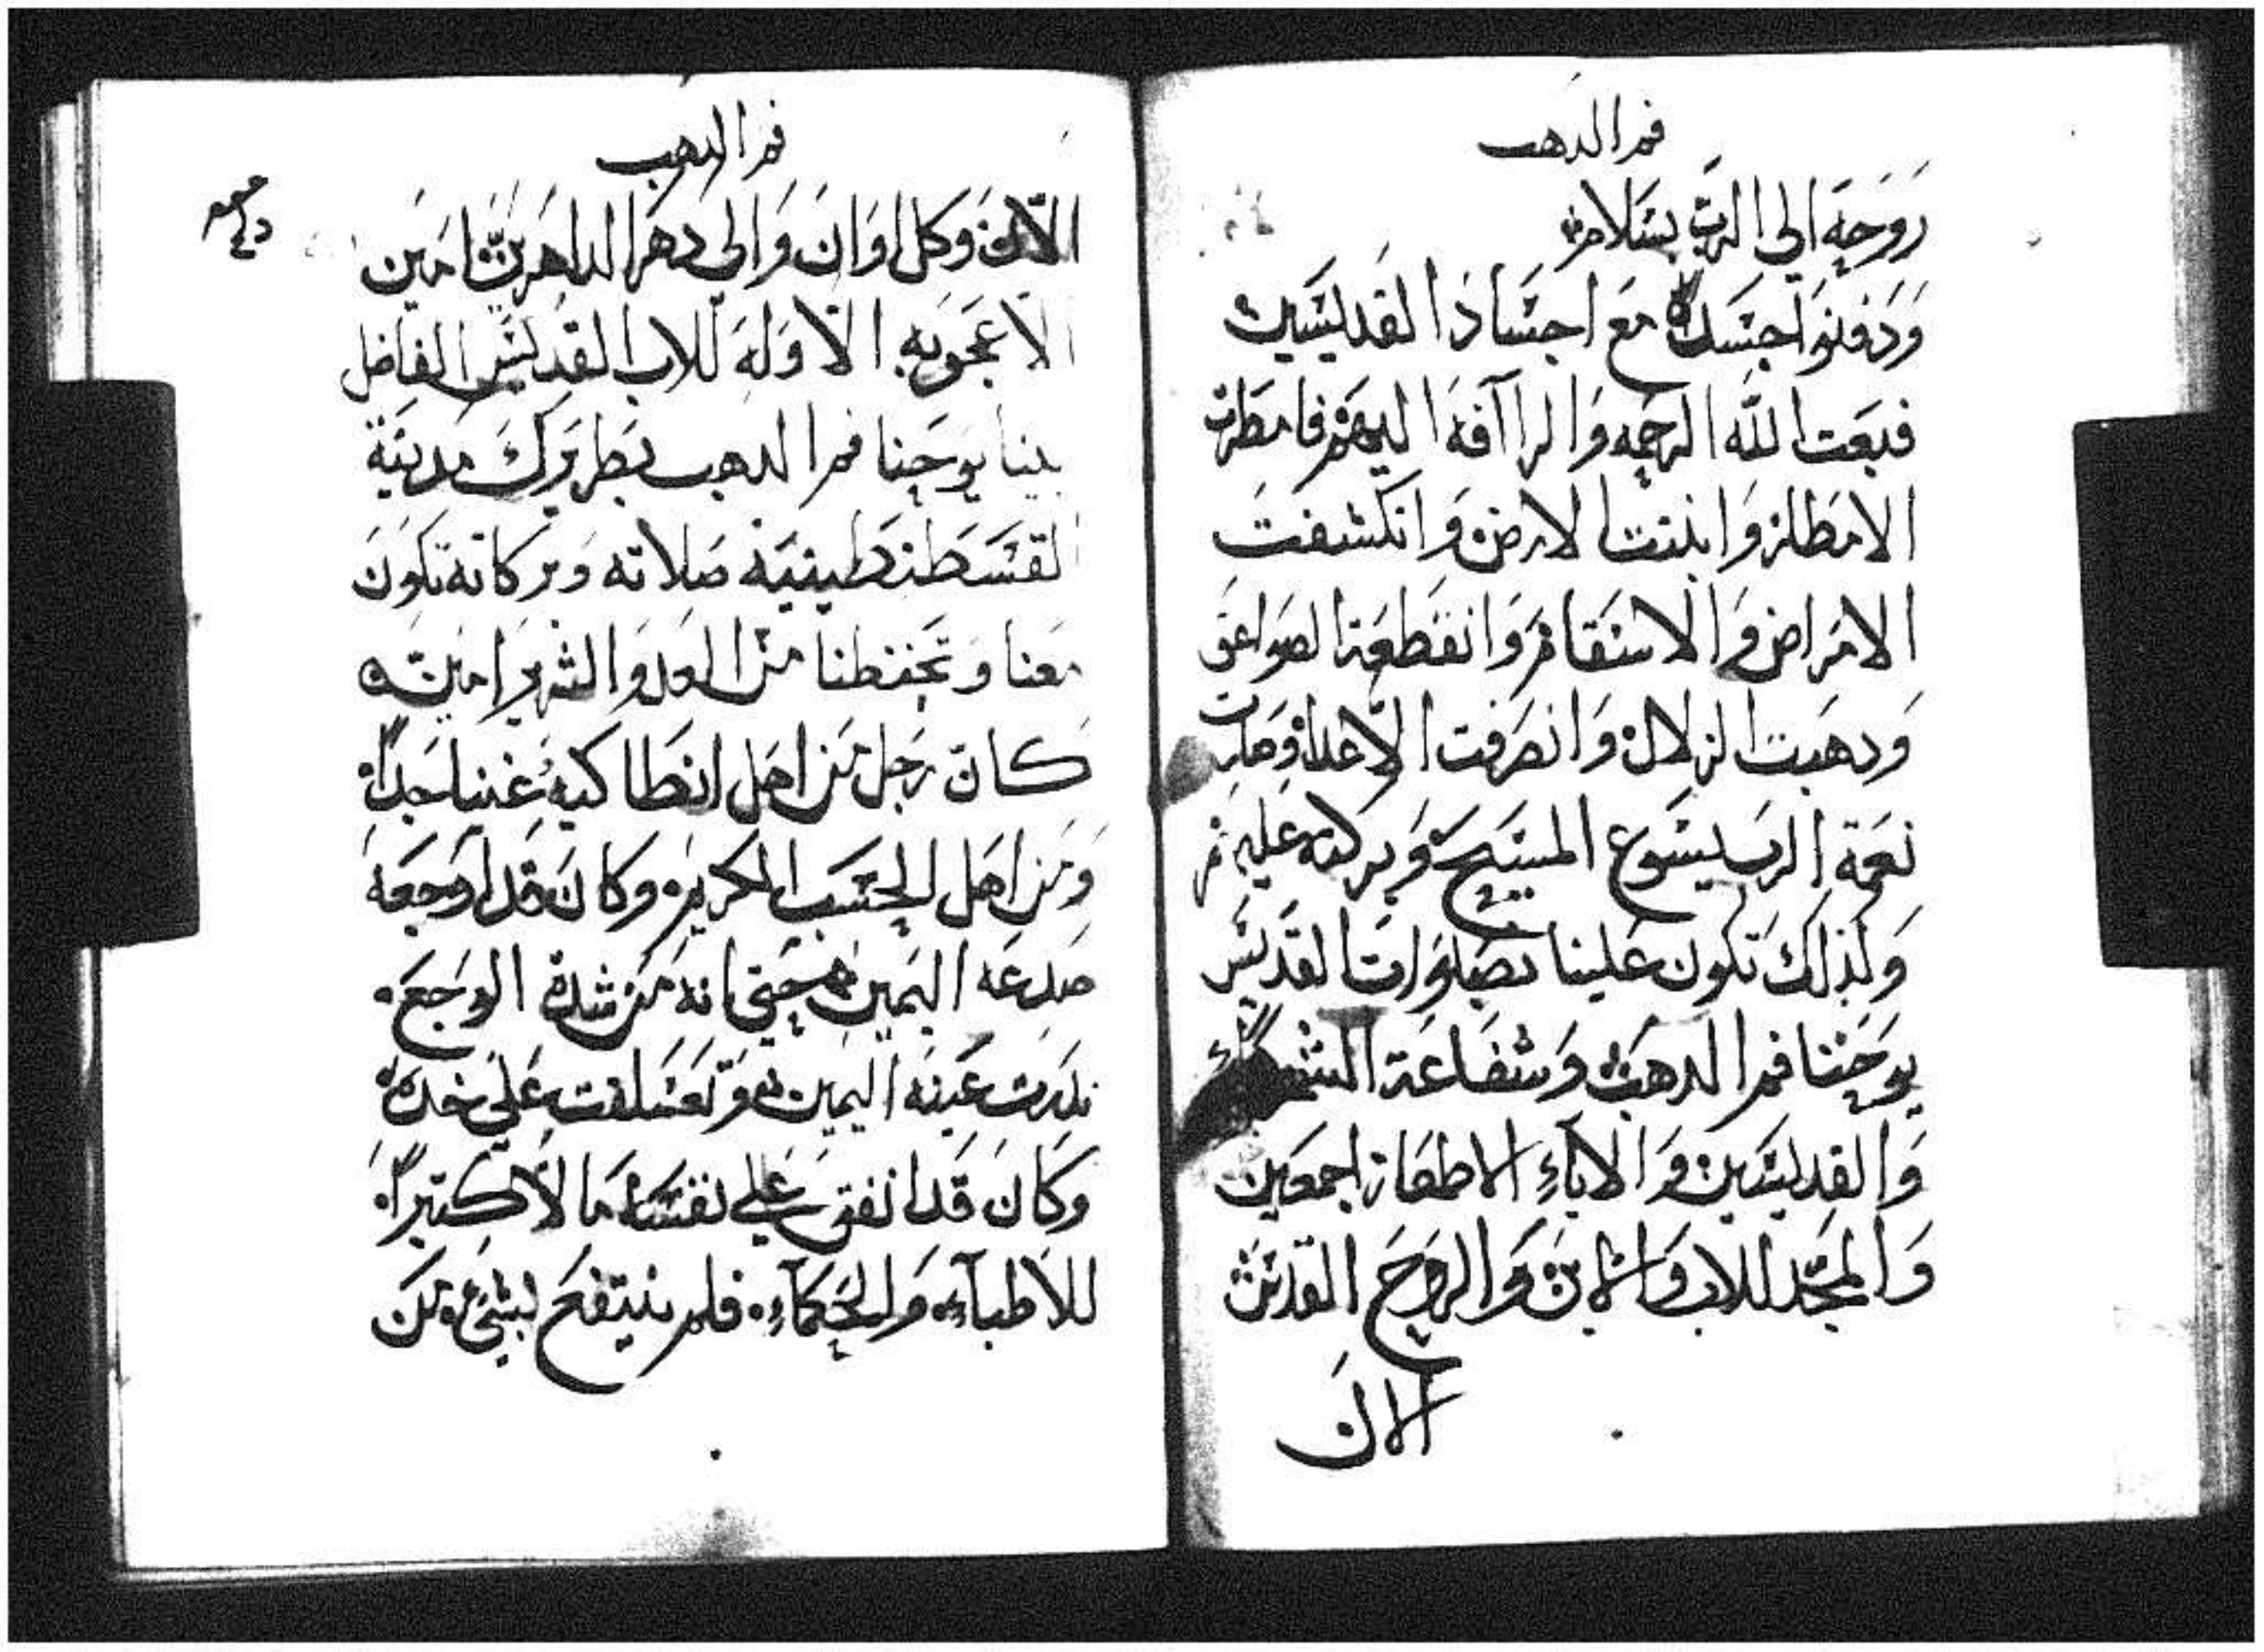 فم الدهب
روحه الي الرب بسلام
ودفنوا جسده مع اجساد القديسين
فبعت الله الرحمه والراآفه اليهم فامطرت
الامطار وانبتت الارض وانكشفت
الامراض والاسقام وانقطعة الصواعق
ودهبت الزلازل وانصرفت الاعدا وصارت
نعمة الرب يسوع المسيح وبركته عليهم
ولذلك تكون علينا بصلوات القديس
يوحنا فم الدهب وشفاعة الشهدآء
والقديسين والابآء الاطهار اجمعين
والمجد للاب والابن والروح القدس
الان
فم الدهب
الان وكل اوان والي دهر الداهرين امين
الاعجوبه الاوله للاب القديس الفاضل
بينا يوحنا فم الدهب بطريرك مدينة
القسطنطينيه صلاته وبركاته تكون
معنا وتحفظنا من العدو الشرير امين
كان رجل من اهل انطاكيه غنيا جدا
ومن اهل الحسب الكريم وكان قد اوجعه
صدعه اليمين حتي انه من شدة الوجع
ندرت عينه اليمين وتعلقت علي خده
وكان قد انفق علي نفسه مالا كتيرا
للاطبآء والحكمآء فلم ينتفع بشيء لكن